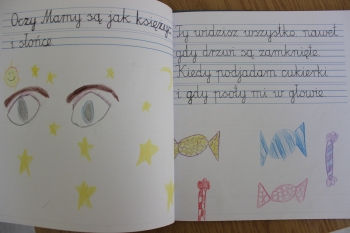 Oczy Mamy są jak księżyc
i słońce.
Ty widzisz wszystko, nawet
gdy drzwi są zamknięte.
Kiedy podjadam cukierki
i gdy psoty mi w głowie.